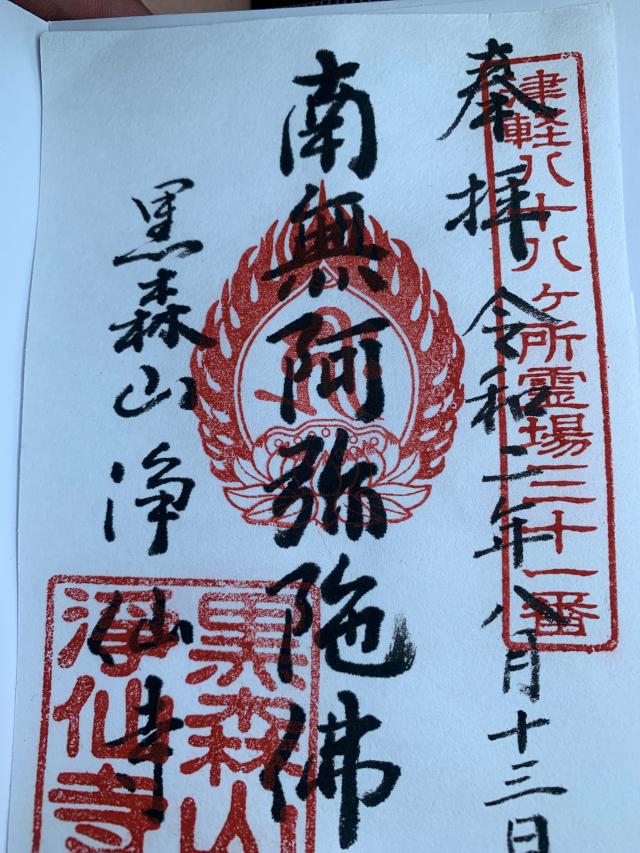 奉拝 令和二年八月十三日
津軽八十八ヶ所霊場三十一番
南無阿弥陀佛
黒森山 浄仙寺
黒森山
浄仙寺